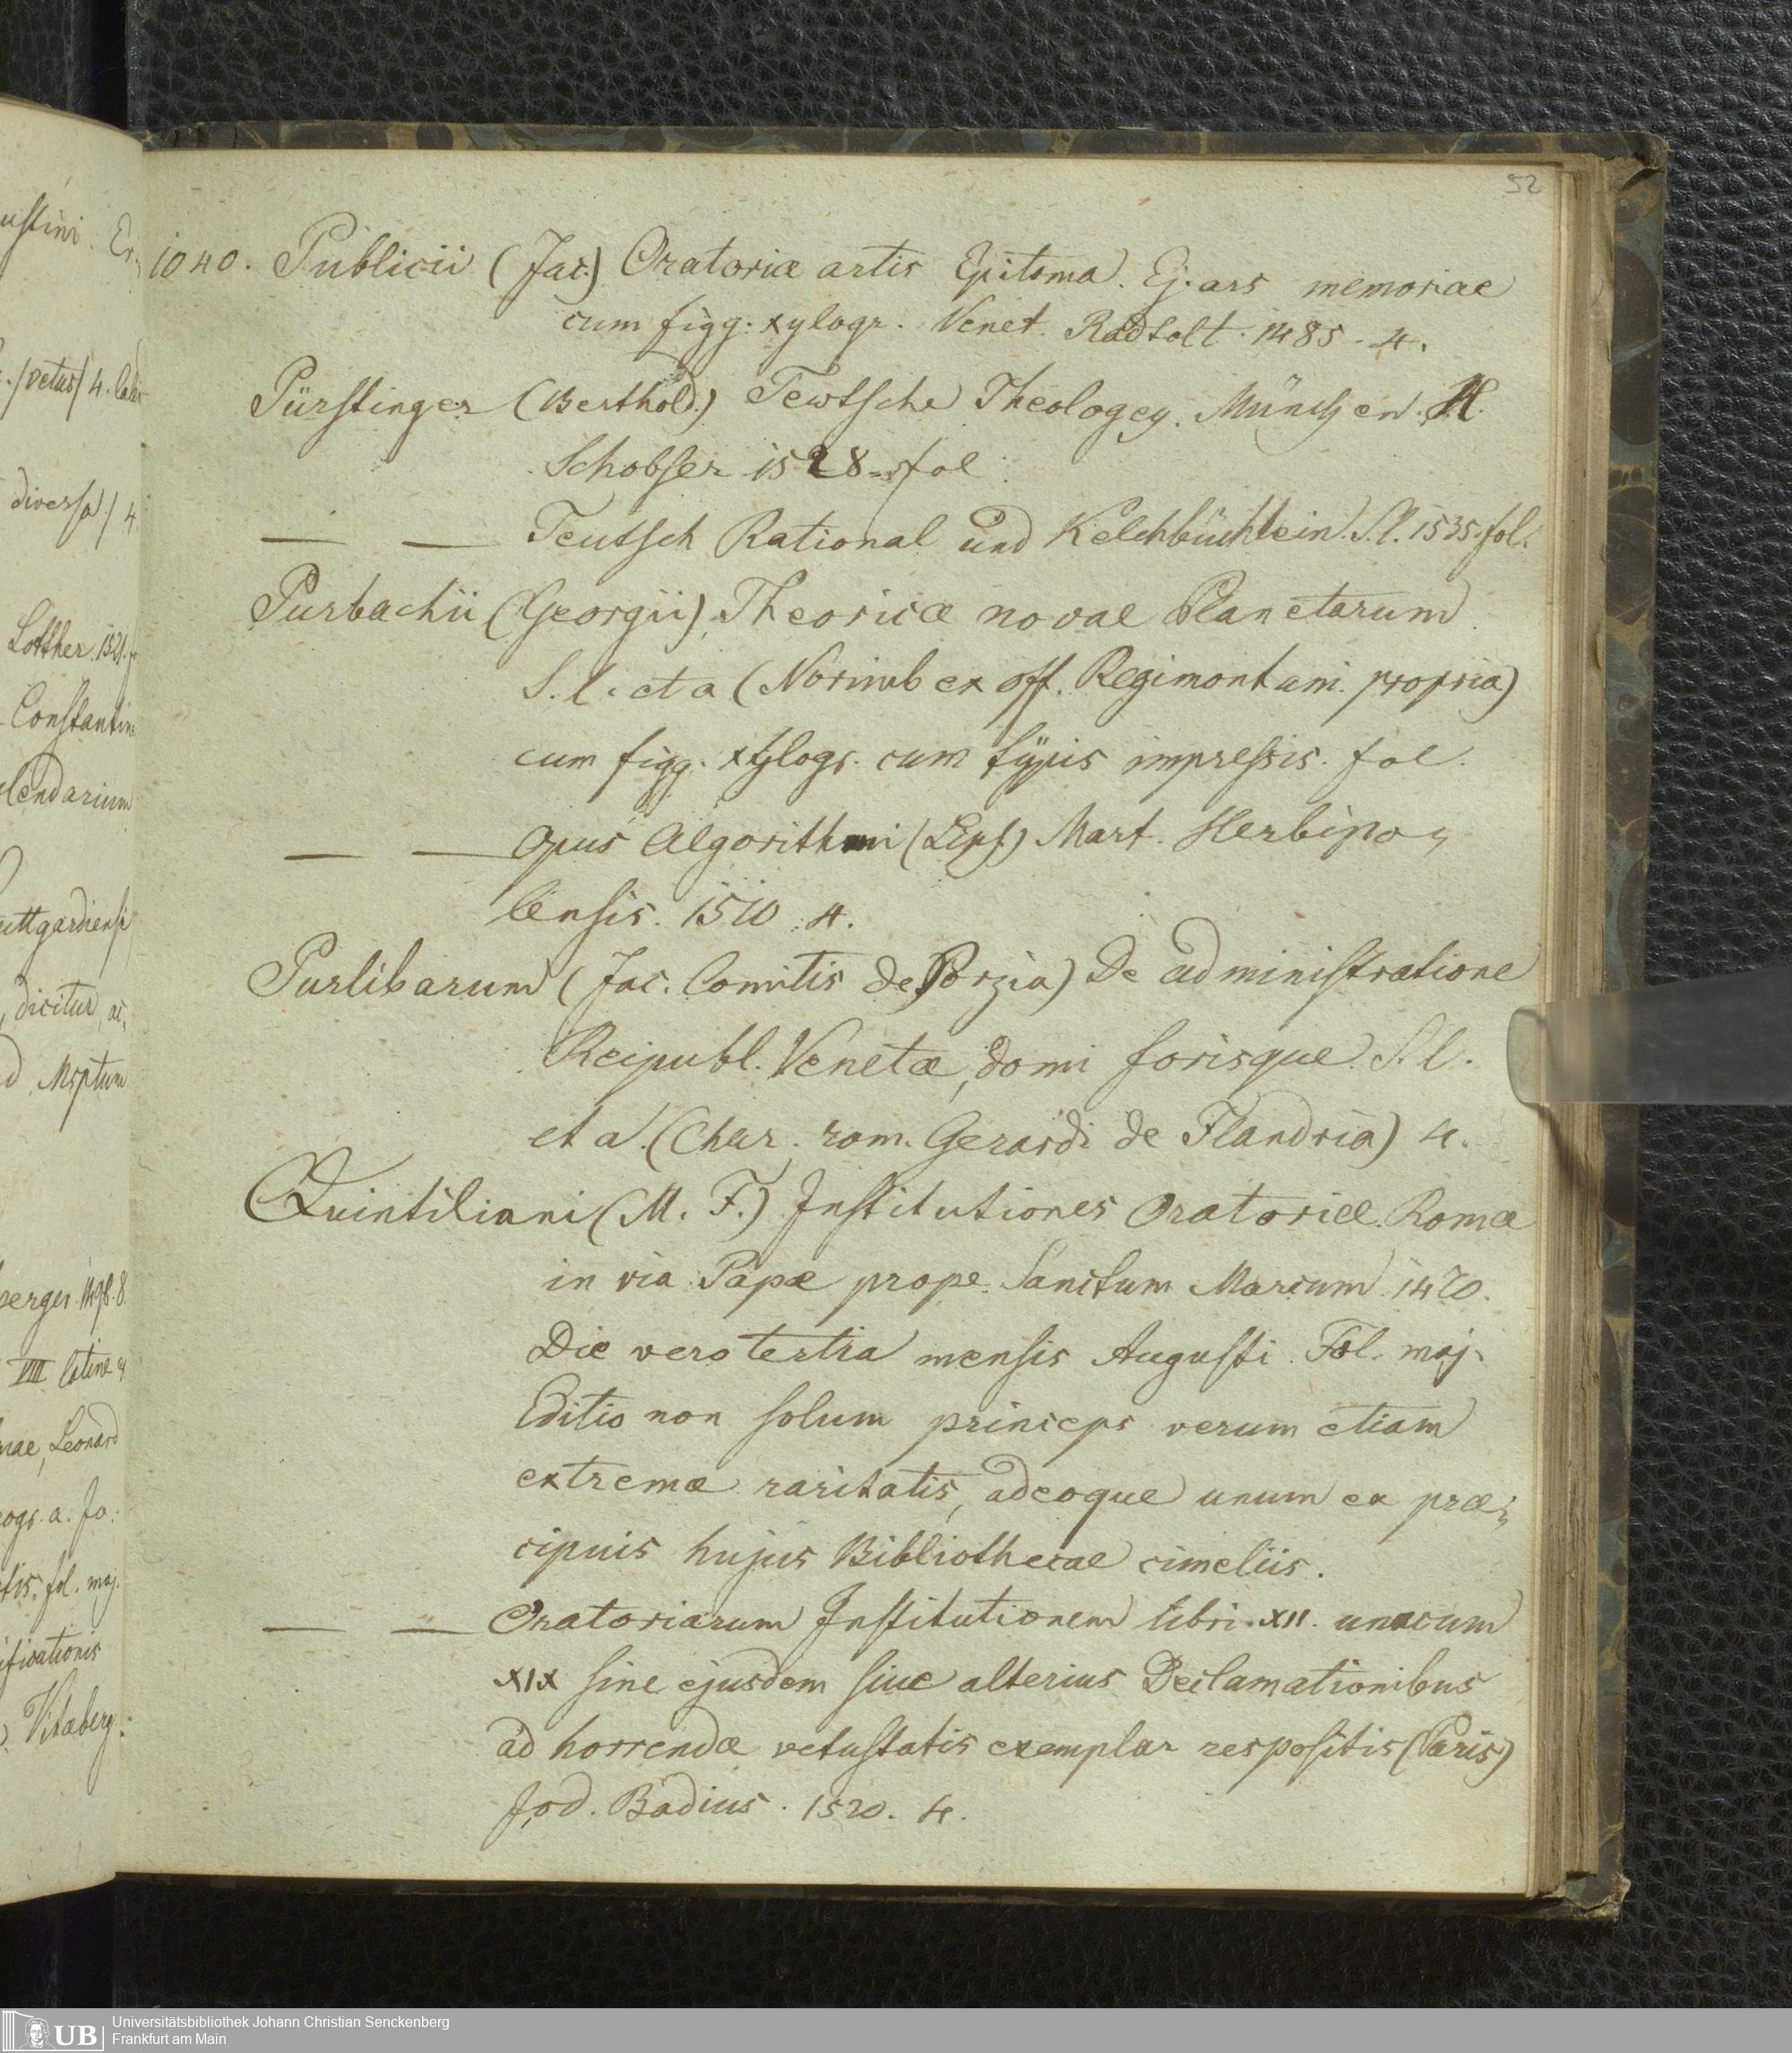 ustini. Er,
. /vetus/ 4.
diversa/ 4.
Lotther. 1521.
Constantin
lendarium
uttgardiensi
, dicitur, ac,
Msptum
perger. 1498. 8.
VIII latine
nae, Leonard
ogr. a. Jo:
tis. fol. maj.
ificationis
Vitaberg.
52
1040. Publicii (Jac.) Oratoriæ artis Epitoma. Ej. ars memoriae
cum figg. xylogr. Venet. Radtolt. 1485. 4.
Pürstinger (Berthold.) Tewtsche Theologey. München. H.
Schobser 1528. fol.
— — Teutsch Rational und Kelchbüchlein. S. l. 1535. fol.
Purbachii (Georgii) Theoricæ novae Planetarum
S. l. et a (Norimb ex off. Regimontani propria)
cum figg. xylogr. cum typis impressis. fol.
— — Opus Algorithmi (Lips.) Mart. Herbipo,,
lensis. 1510. 4.
Purlibarum (Jac. Comitis de Porzia) De administratione
Reipubl. Venetæ, domi forisque. S. l.
et a. (Char. rom. Gerardi de Flandria) 4.
Quintiliani (M. F.) Institutiones Oratoriæ. Romæ
in via Papæ prope Sanctum Marcum 1470.
Die vero tertia mensis Augusti. Fol. maj.
Editio non solum princeps verum etiam
extremæ raritatis, adeoque unum ex præ,,
cipuis hujus Bibliothecae cimeliis.
— — Oratoriarum Institutionem libri XII. unacum
XIX sine ejusdem siue alterius Declamationibus
ad horrendæ vetustatis exemplar respositis (Paris)
Jod. Badius. 1520. 4.
UB
Universitätsbibliothek Johann Christian Senckenberg
Frankfurt am Main